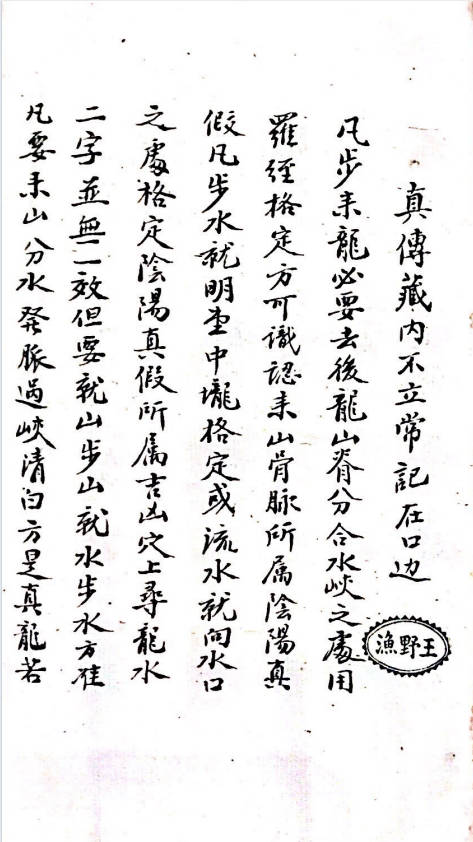 真傳藏內不立常記在口边
凡步来龍必要去後龍山脊分合水峽之處用
羅經格定方可識認来山骨脉所属陰陽真
假凡步水就明堂中壠格定或流水就向水口
之處格定陰陽真假所属吉凶穴上尋龍水
二字並無一效但要就山步山就水步水方准
凡要来山分水發脈過峽清白方是真龍若
漁野王